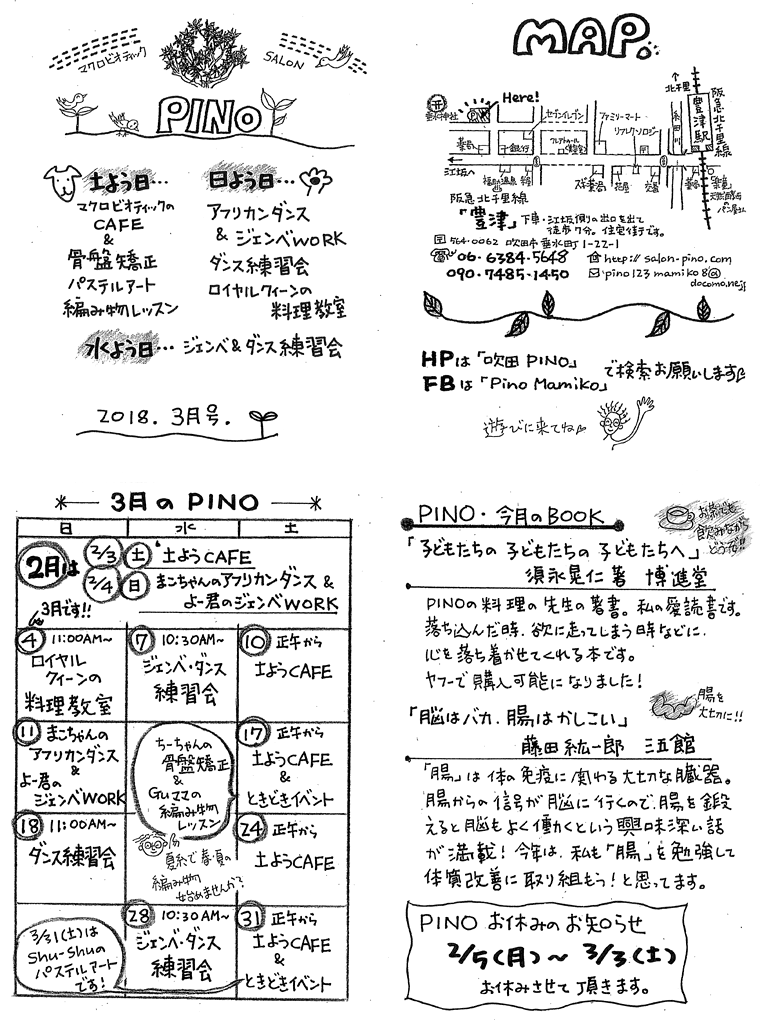 マクロビオティック
SALON
PINO
土よう日…
マクロビオティックの
CAFE
&
骨盤矯正
パステルアート
編み物レッスン
日よう日…
アフリカンダンス
& ジェンベWORK
ダンス練習会
ロイヤルクィーンの
料理教室
水よう日… ジェンベ&ダンス練習会
2018. 3月号.
MAP.
Here!
垂水神社
PINO
セブンイレブン
ファミリーマート
リフレクソロジー
北千里
豊津駅
阪急北千里線
糸田川
薬局
銀行
江坂へ
阪急北千里線
花屋
交番
「豊津」下車・江坂側の出口を出て
徒歩7分。住宅街です。
〒564-0062 吹田市垂水町1-22-1
06-6384-5648
http://salon-pino.com
090-7485-1450
pino123mamiko8@
docomo.ne.jp
HPは「吹田PINO」
FBは「Pino Mamiko」
で検索お願いします
遊びに来てね
3月のPINO
日 水 土
2月は
2/3 土 土ようCAFE
2/4 日 まこちゃんのアフリカンダンス &
よー君のジェンベWORK
3月です!!
4 11:00AM~
ロイヤル
クィーンの
料理教室
7 10:30AM~
ジェンベ・ダンス
練習会
10 正午から
土ようCAFE
11 まこちゃんの
アフリカンダンス
&
よー君の
ジェンベWORK
ちーちゃんの
骨盤矯正
&
Guママの
編み物
レッスン
17 正午から
土ようCAFE
&
ときどきイベント
18 11:00AM~
ダンス練習会
夏糸で春夏の
編み物
始めませんか?
24 正午から
土ようCAFE
3/31(土)は
Shu-Shuの
パステルアート
です!
28 10:30AM~
ジェンベ・ダンス
練習会
31 正午から
土ようCAFE
&
ときどきイベント
PINO・今月のBOOK
お茶でも
飲みながら
どうぞ!!
「子どもたちの 子どもたちの 子どもたちへ」
須永晃仁著 博進堂
PINOの料理の先生の著書。私の愛読書です。
落ち込んだ時、欲に走ってしまう時などに、
心を落ち着かせてくれる本です。
ヤフーで購入可能になりました!
腸を
大切に!!
「脳はバカ、腸はかしこい」
藤田紘一郎 三五館
「腸」は体の免疫に関わる大切な臓器。
腸からの信号が脳に行くので、腸を鍛
えると脳もよく働くという興味深い話
が満載! 今年は、私も「腸」を勉強して
体質改善に取り組もう!と思ってます。
PINO お休みのお知らせ
2/5(月)~3/3(土)
お休みさせて頂きます。